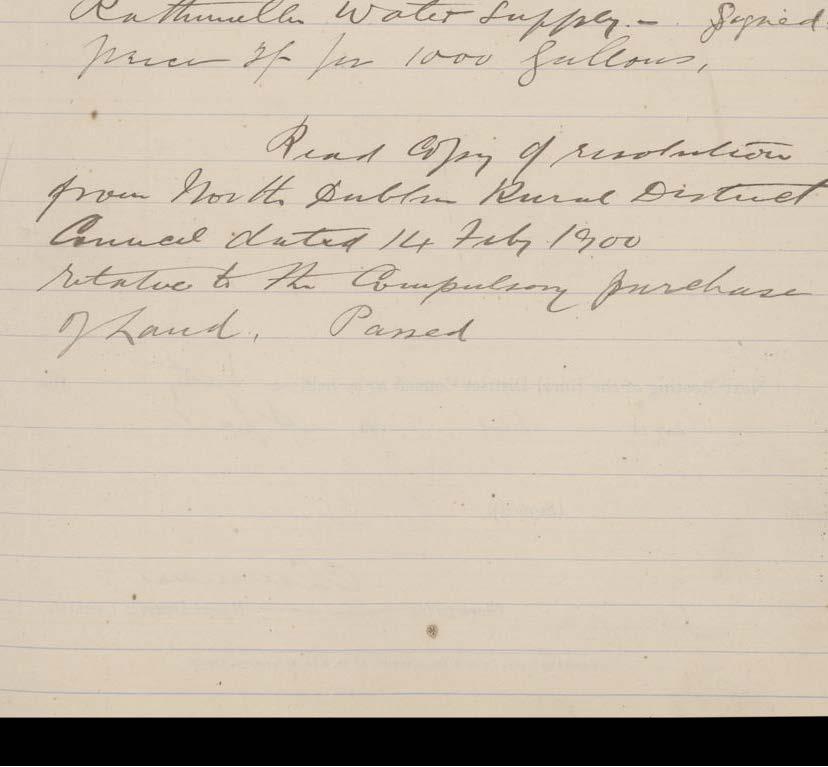 Rathmullen Water Supply. – Signed
price 2/- per 1000 Gallons,
Read Copy of resolution
from North Dublin Rural District
Council dated 14 Feby 1900
relative to the Compulsory purchase
of Land. Passed